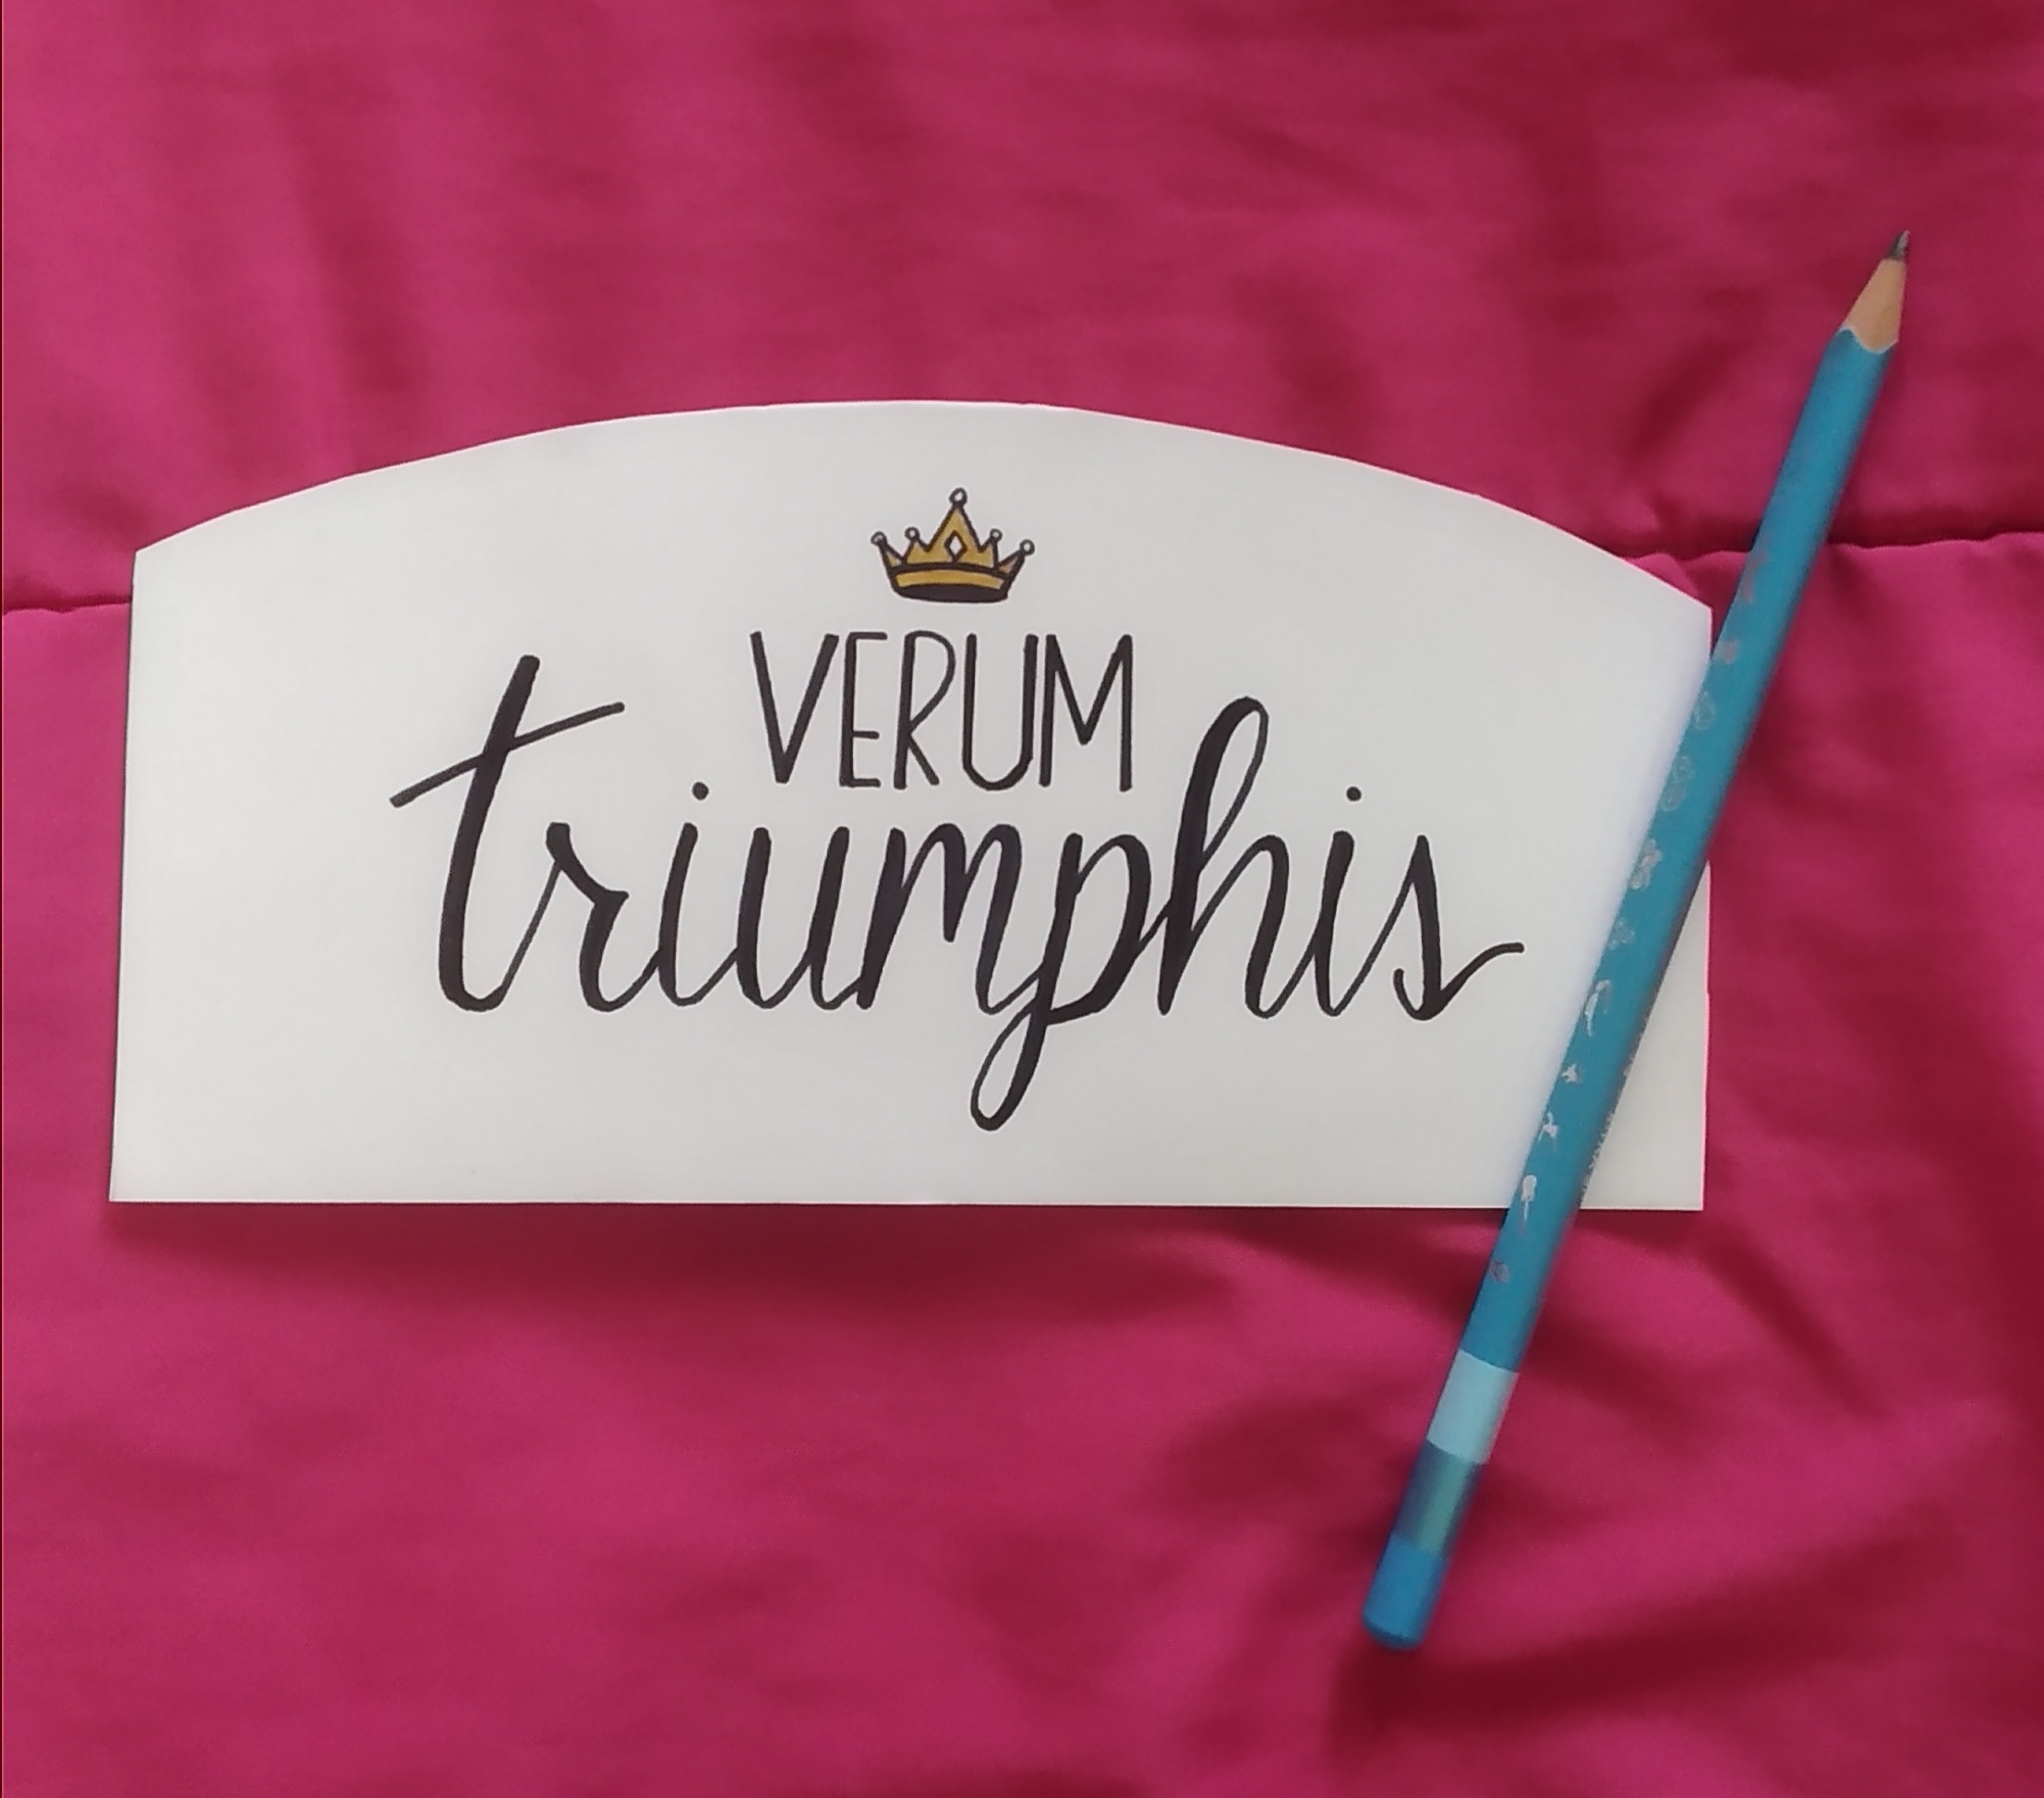 VERUM
triumphis